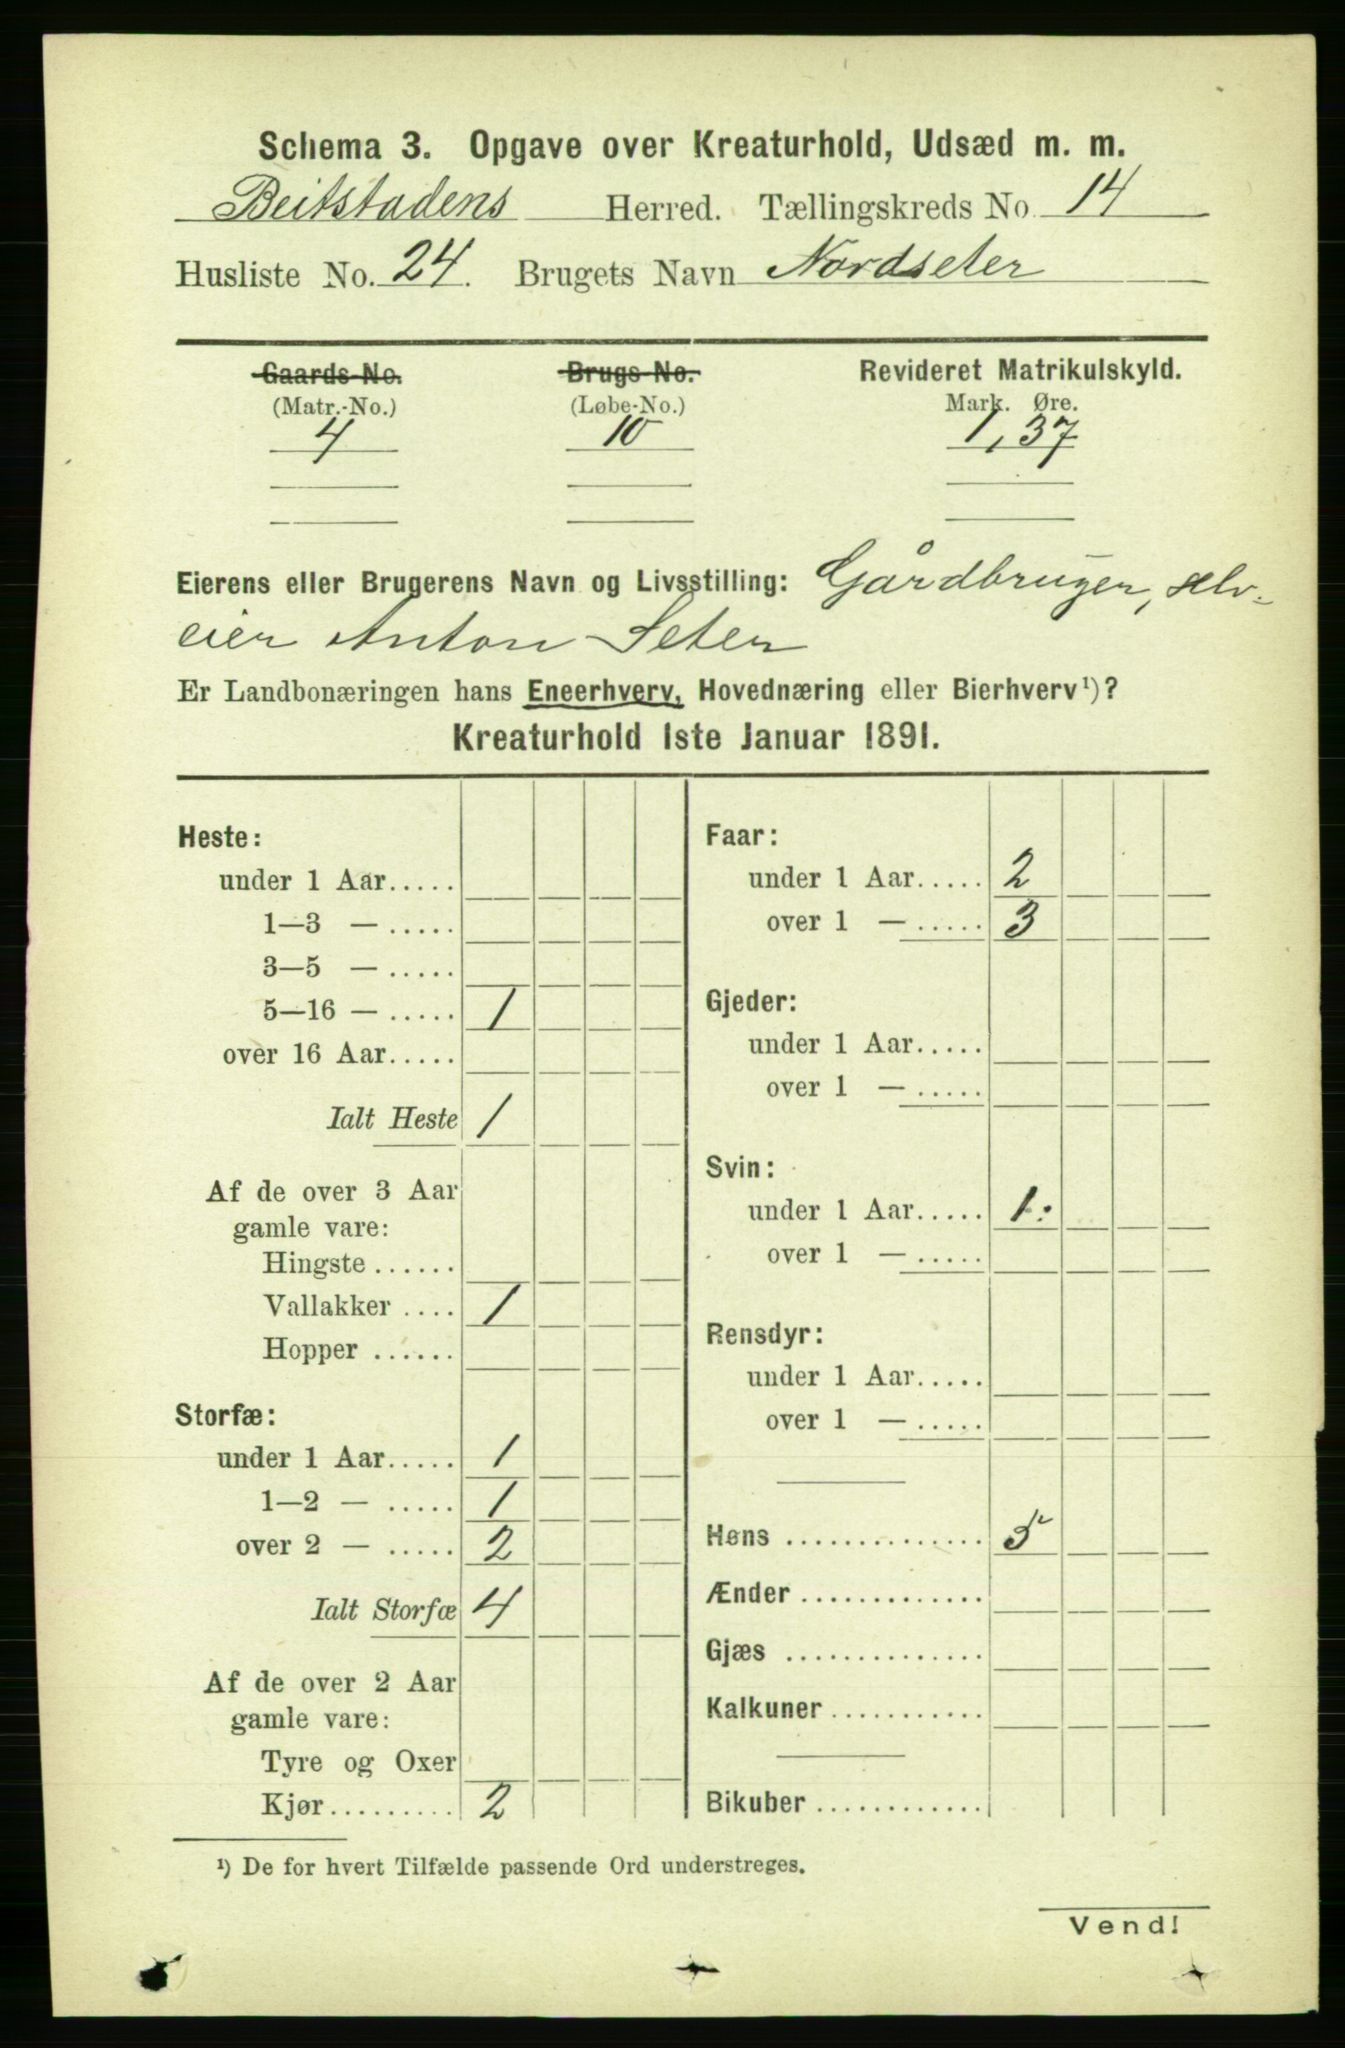 Schema 3. Opgave over Kreaturhold, Udsæd m. m.
Beitstadens Herred. Tællingskreds No. 14
Husliste No. 24. Brugets Navn Nordseter
Gaards-No. Brugs-No. Revideret Matrikulskyld.
(Matr.-No.) (Løbe-No.) Mark. Øre.
4 10 1,37
Eierens eller Brugerens Navn og Livsstilling: Gårdbruger, selv-
eier Anton Seter
Er Landbonæringen hans Eneerhverv, Hovednæring eller Bierhverv¹)?
Kreaturhold 1ste Januar 1891.
Heste:
under 1 Aar.....
1—3 — .....
3—5 — .....
5—16 — ..... 1
over 16 Aar.....
Ialt Heste 1
Af de over 3 Aar
gamle vare:
Hingste ......
Vallakker .... 1
Hopper ......
Storfæ:
under 1 Aar..... 1
1—2 — ..... 1
over 2 — ..... 2
Ialt Storfæ 4
Af de over 2 Aar
gamle vare:
Tyre og Oxer
Kjør......... 2
Faar:
under 1 Aar..... 2
over 1 — ..... 3
Gjeder:
under 1 Aar.....
over 1 — .....
Svin:
under 1 Aar..... 1.
over 1 — .....
Rensdyr:
under 1 Aar.....
over 1 — .....
Høns .............. 5
Ænder .............
Gjæs ..............
Kalkuner ...........
Bikuber ............
¹) De for hvert Tilfælde passende Ord understreges.
Vend!